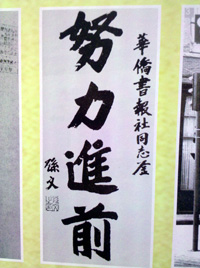 華僑書報社同志全
努力進前
孫文